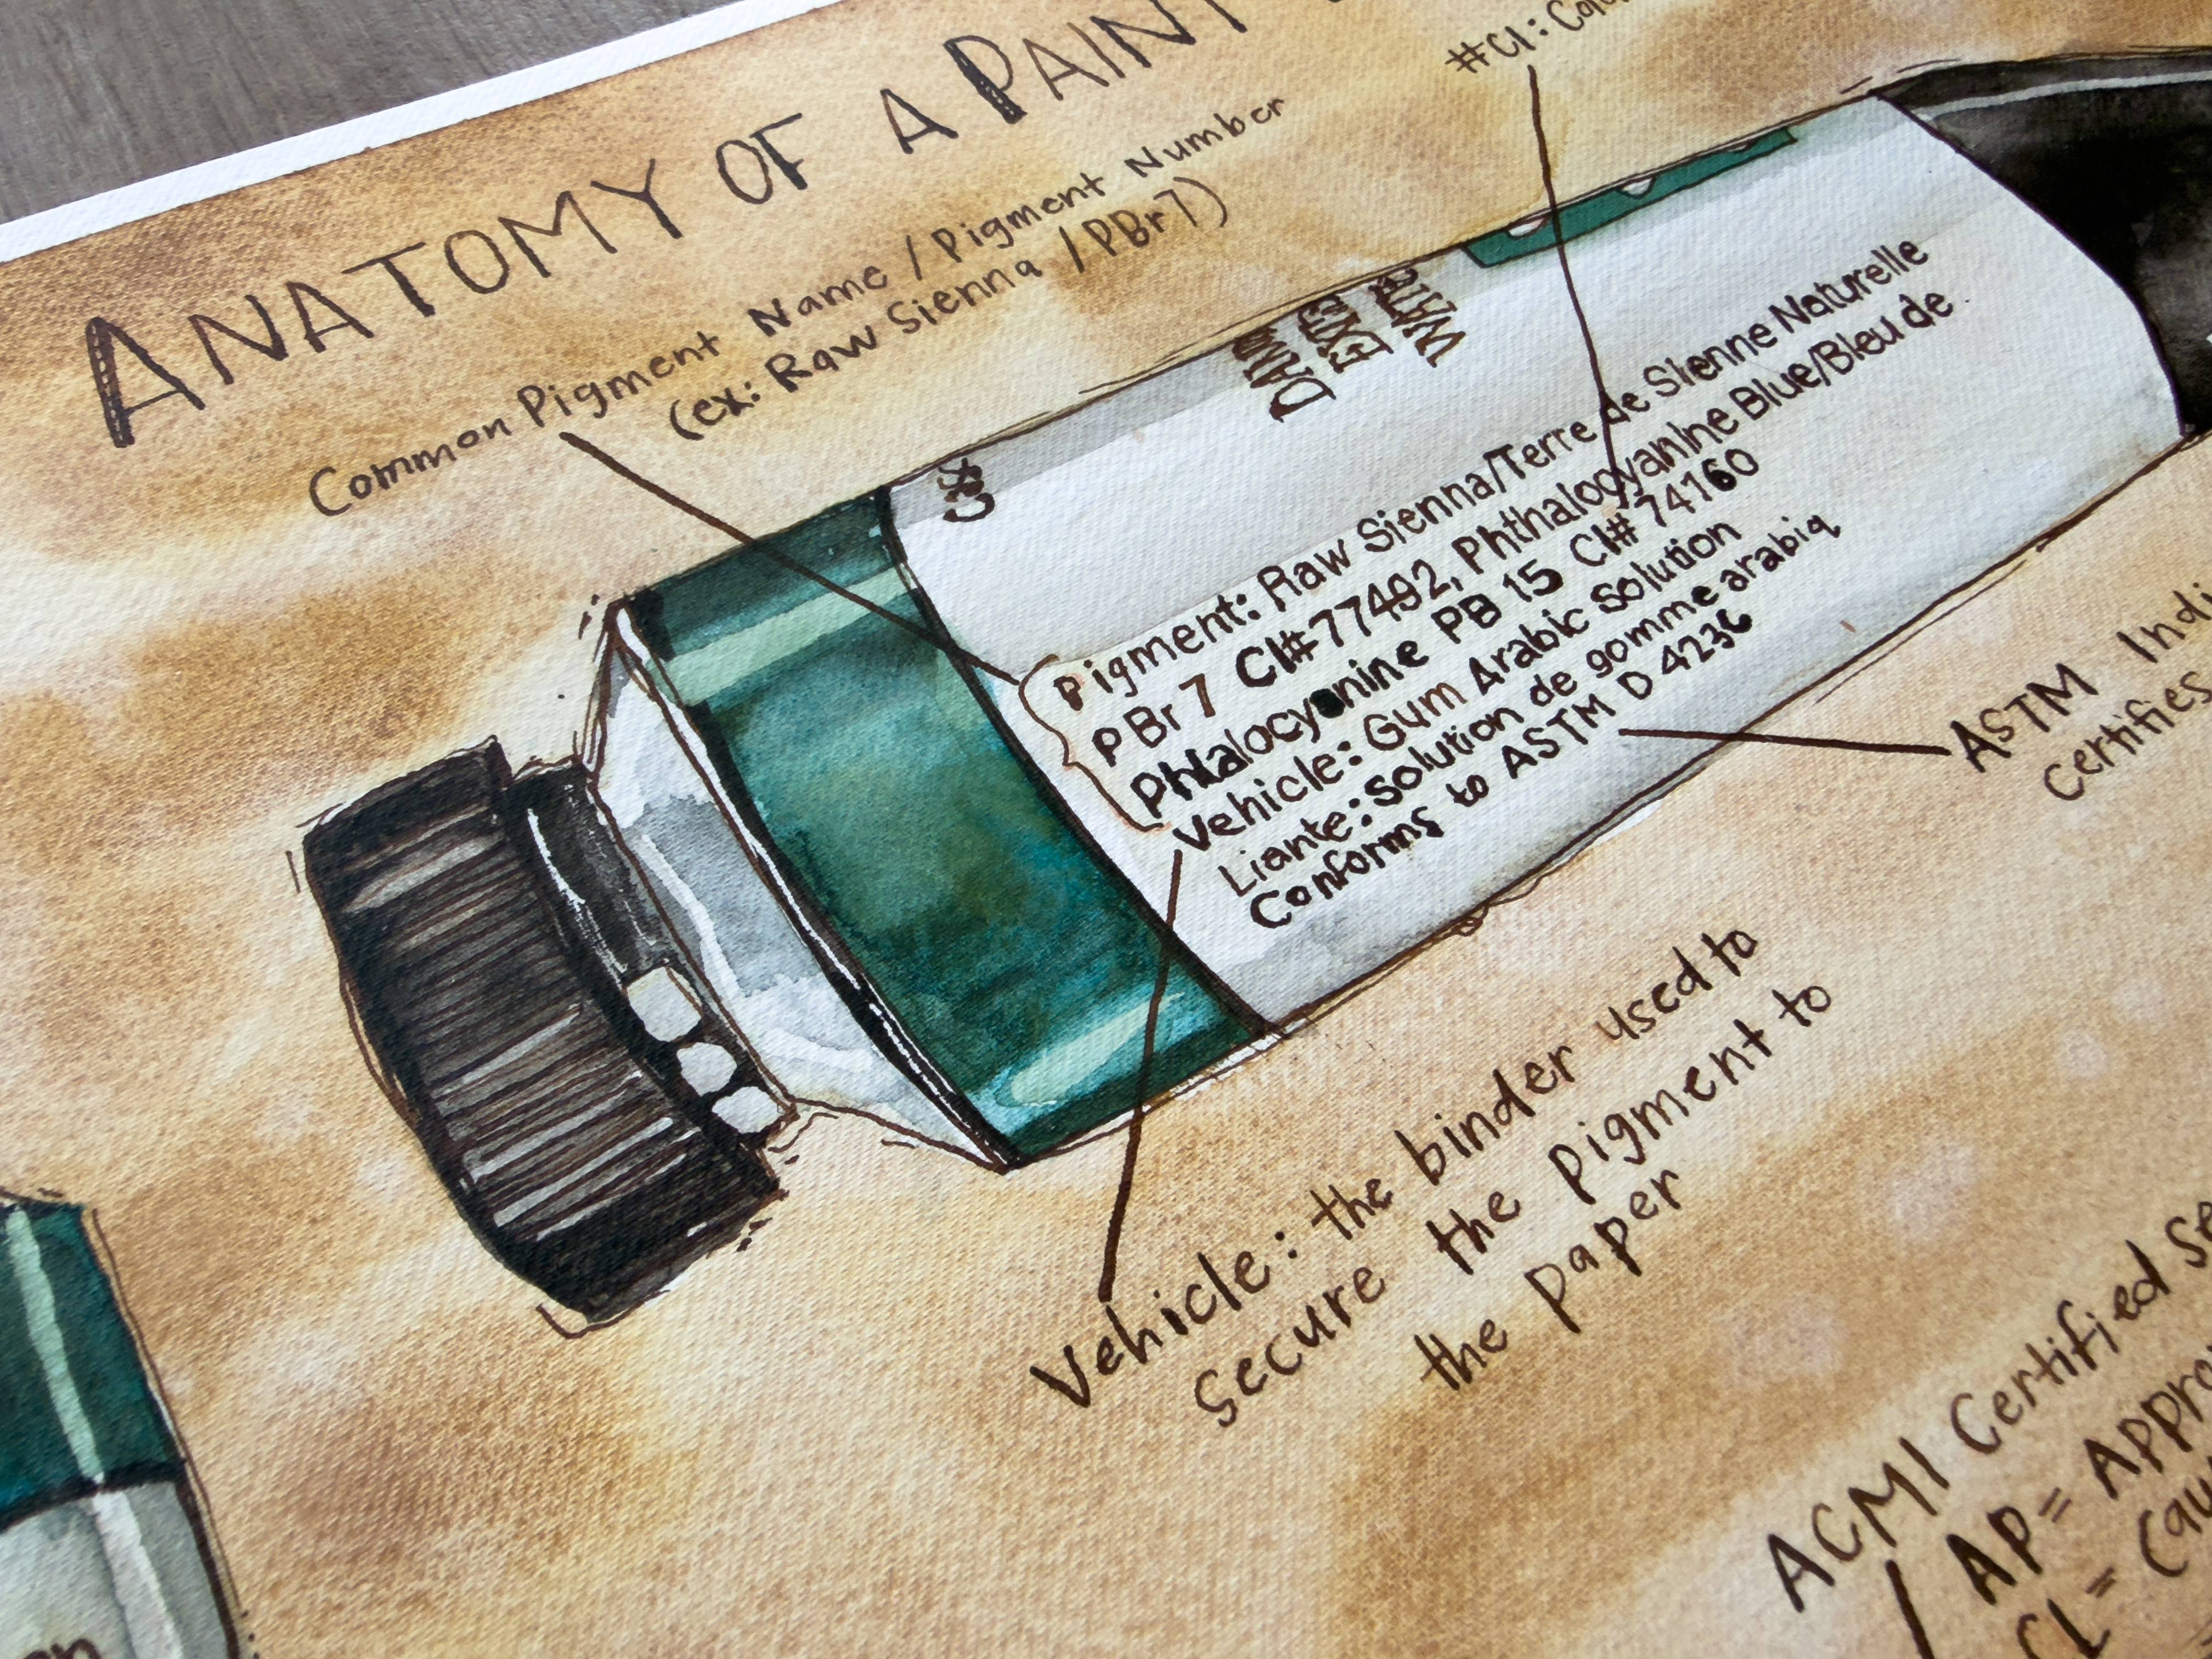 ANATOMY OF A PAINT
#CI:
Common Pigment Name / Pigment Number
(ex: Raw Sienna / PBr7)
Pigment: Raw Sienna/Terre de Sienne Naturelle
PBr 7 CI#77492, Phthalocyanine Blue/Bleu de
Phtalocyanine PB 15 CI# 74160
Vehicle: Gum Arabic Solution
Liante: Solution de gomme arabiq
Conforms to ASTM D 4236
ASTM
certifies
Vehicle: the binder used to
secure the pigment to
the paper
ACMI Certified
AP =
CL =